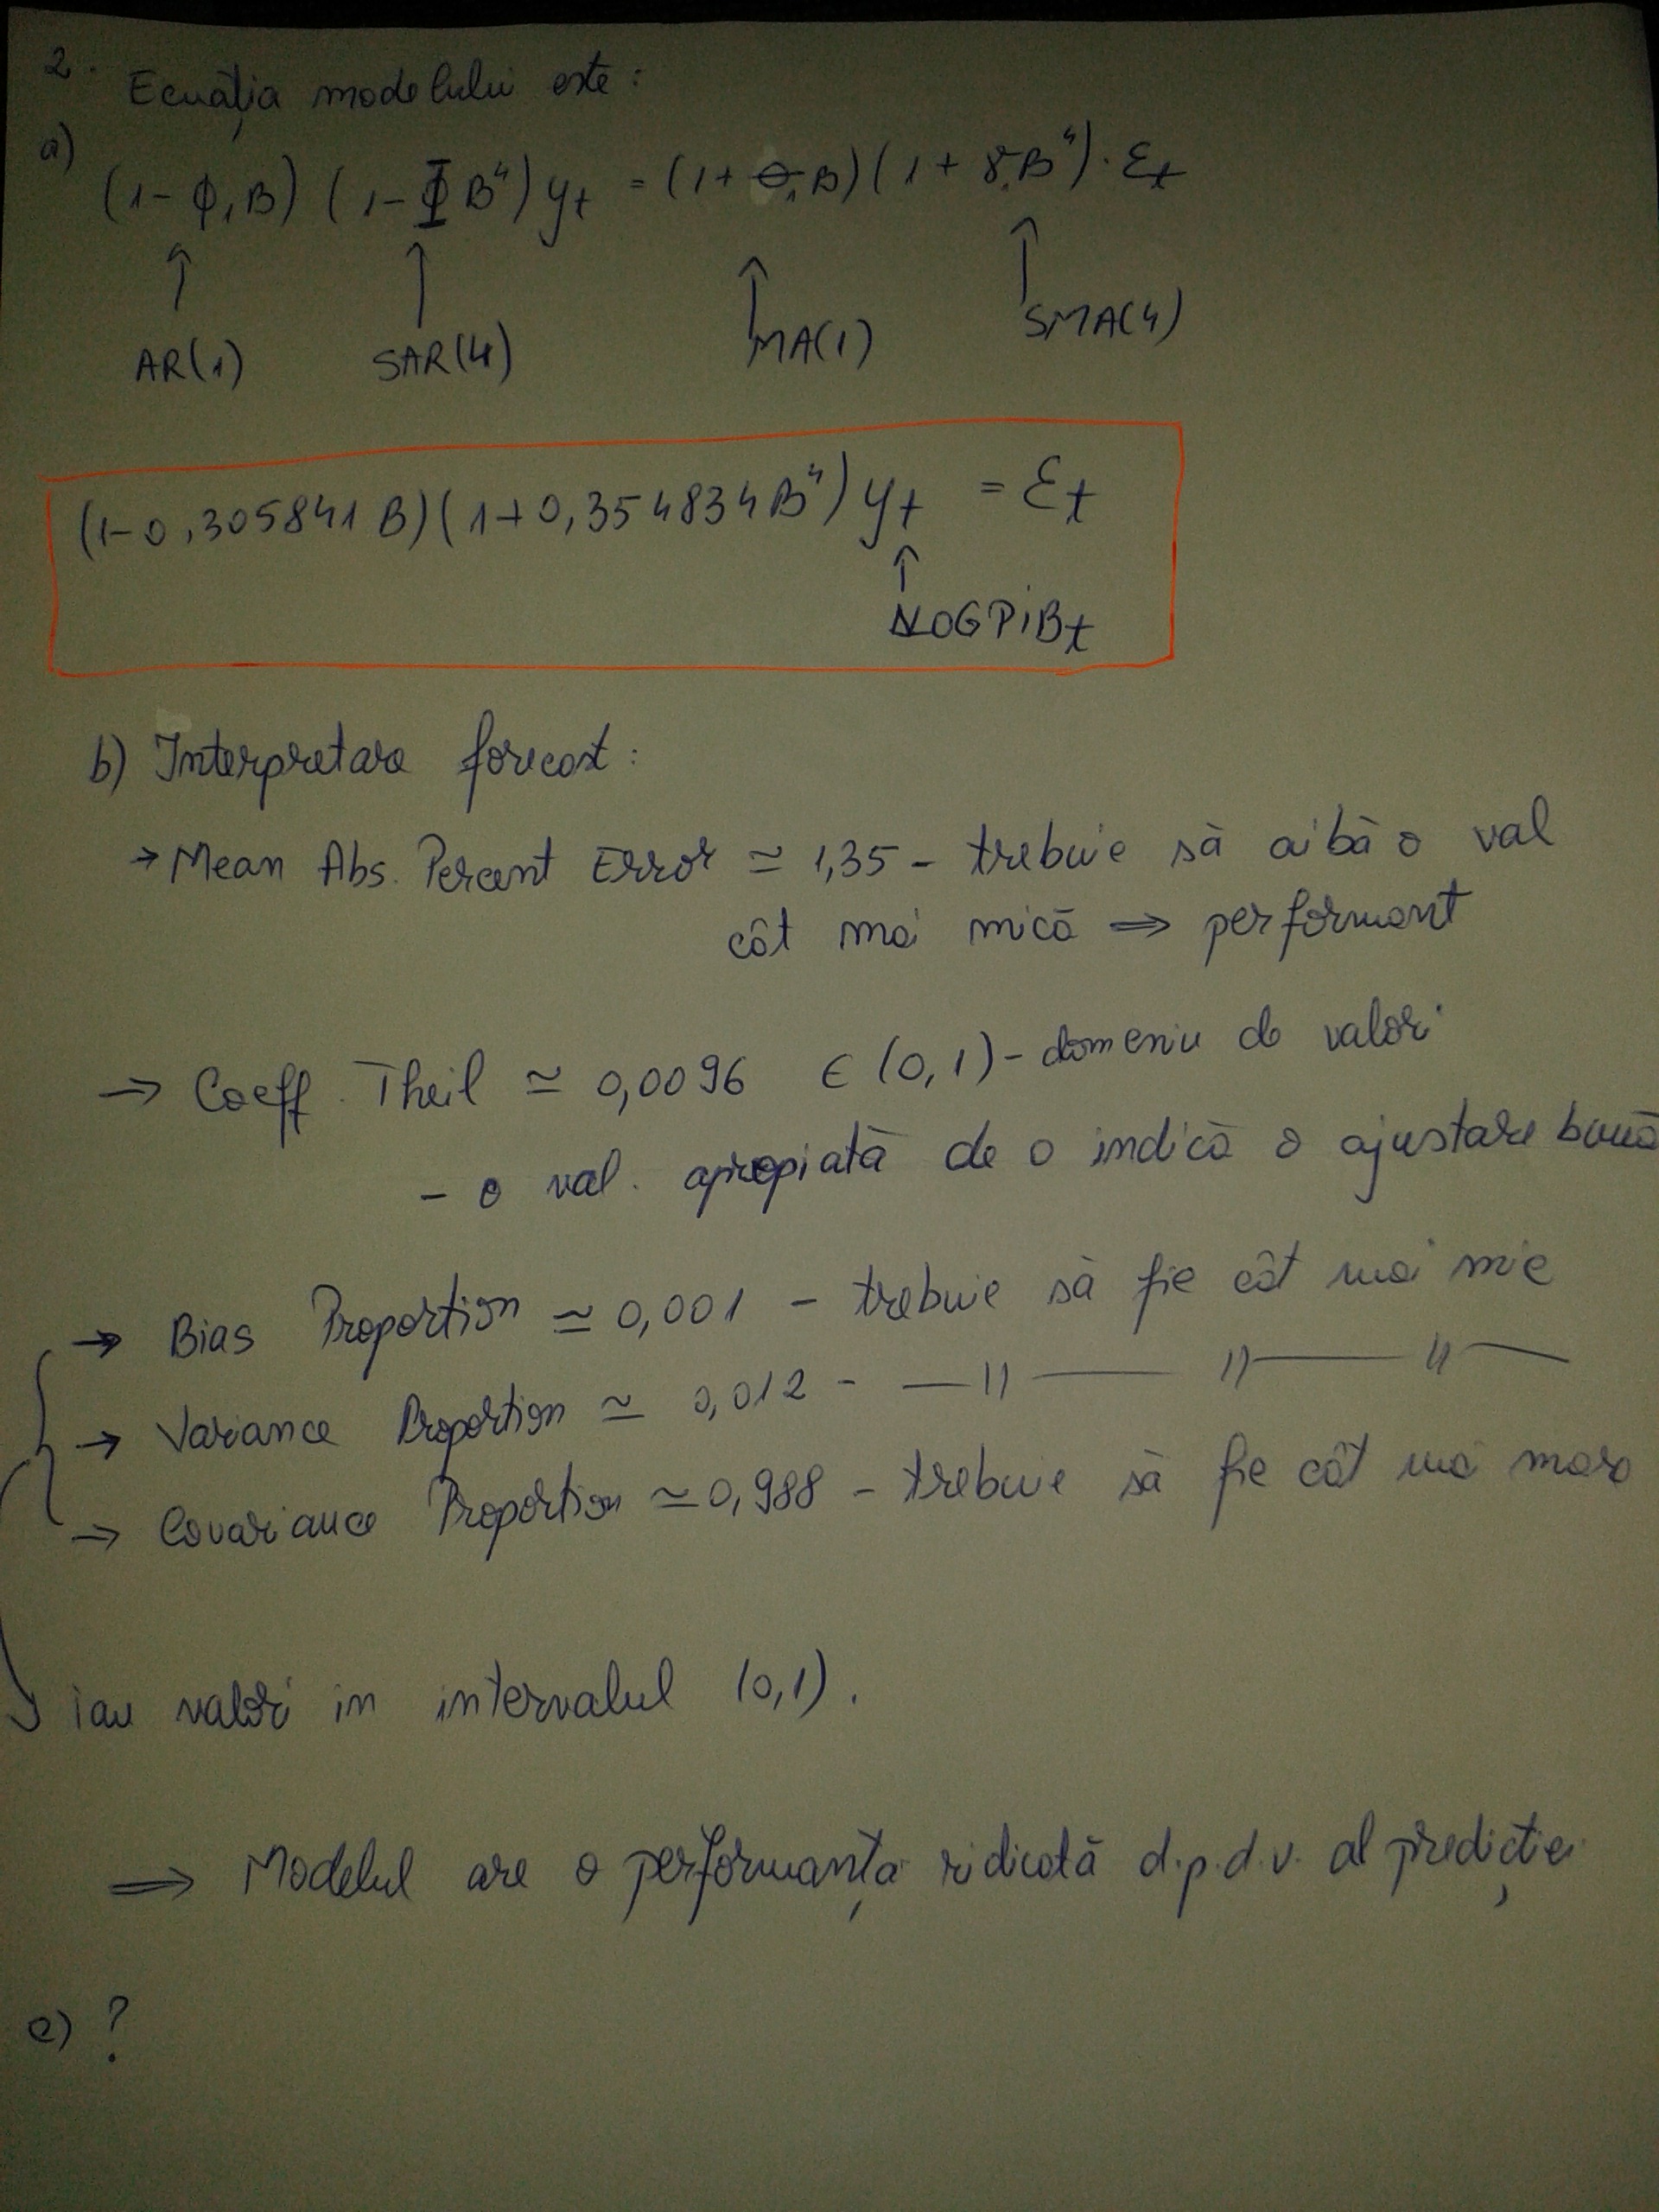 2. Ecuația modelului este:
a) (1-ϕ₁B) (1-ΦB⁴) yt = (1+θ₁B)(1+γ₁B⁴)·Ɛt
AR(1) SAR(4) MA(1) SMA(4)
(1-0,305841B)(1+0,354834B⁴) yt = Ɛt
LOGPIBt
b) Interpretare forecast:
→ Mean Abs. Percent Error ≃ 1,35 - trebuie să aibă o val
cât mai mică ⇒ performant
→ Coeff. Theil ≃ 0,0096 ∈ (0,1) - domeniu de valori
- o val. apropiată de 0 indică o ajustare bună
→ Bias Proportion ≃ 0,001 - trebuie să fie cât mai mic
→ Variance Proportion ≃ 0,012 - —"— "— "—
→ Covariance Proportion ≃ 0,988 - trebuie să fie cât mai mare
iau valori in intervalul (0,1).
⇒ Modelul are o performanța ridicată d.p.d.v. al predicției
c) ?